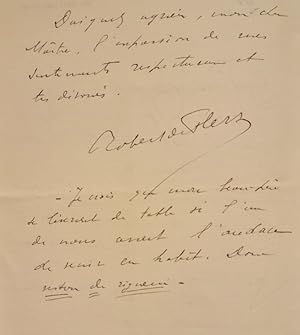 Daignez agréer, mon cher
Maître, l'expression de mes
sentiments respectueux et
très dévoués.
Robert de Flers
- Je crois que mon beau-père
de table si l'un
de nous avait l'audace
de venir en habit. Donc
veston de rigueur -